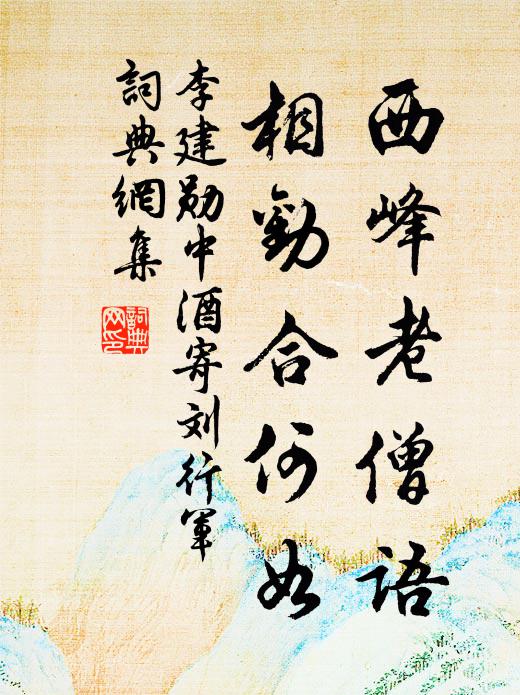 西峰老僧語
相勸合何如
李建勛中酒寄刘行軍
詞典網集
詞典
网印